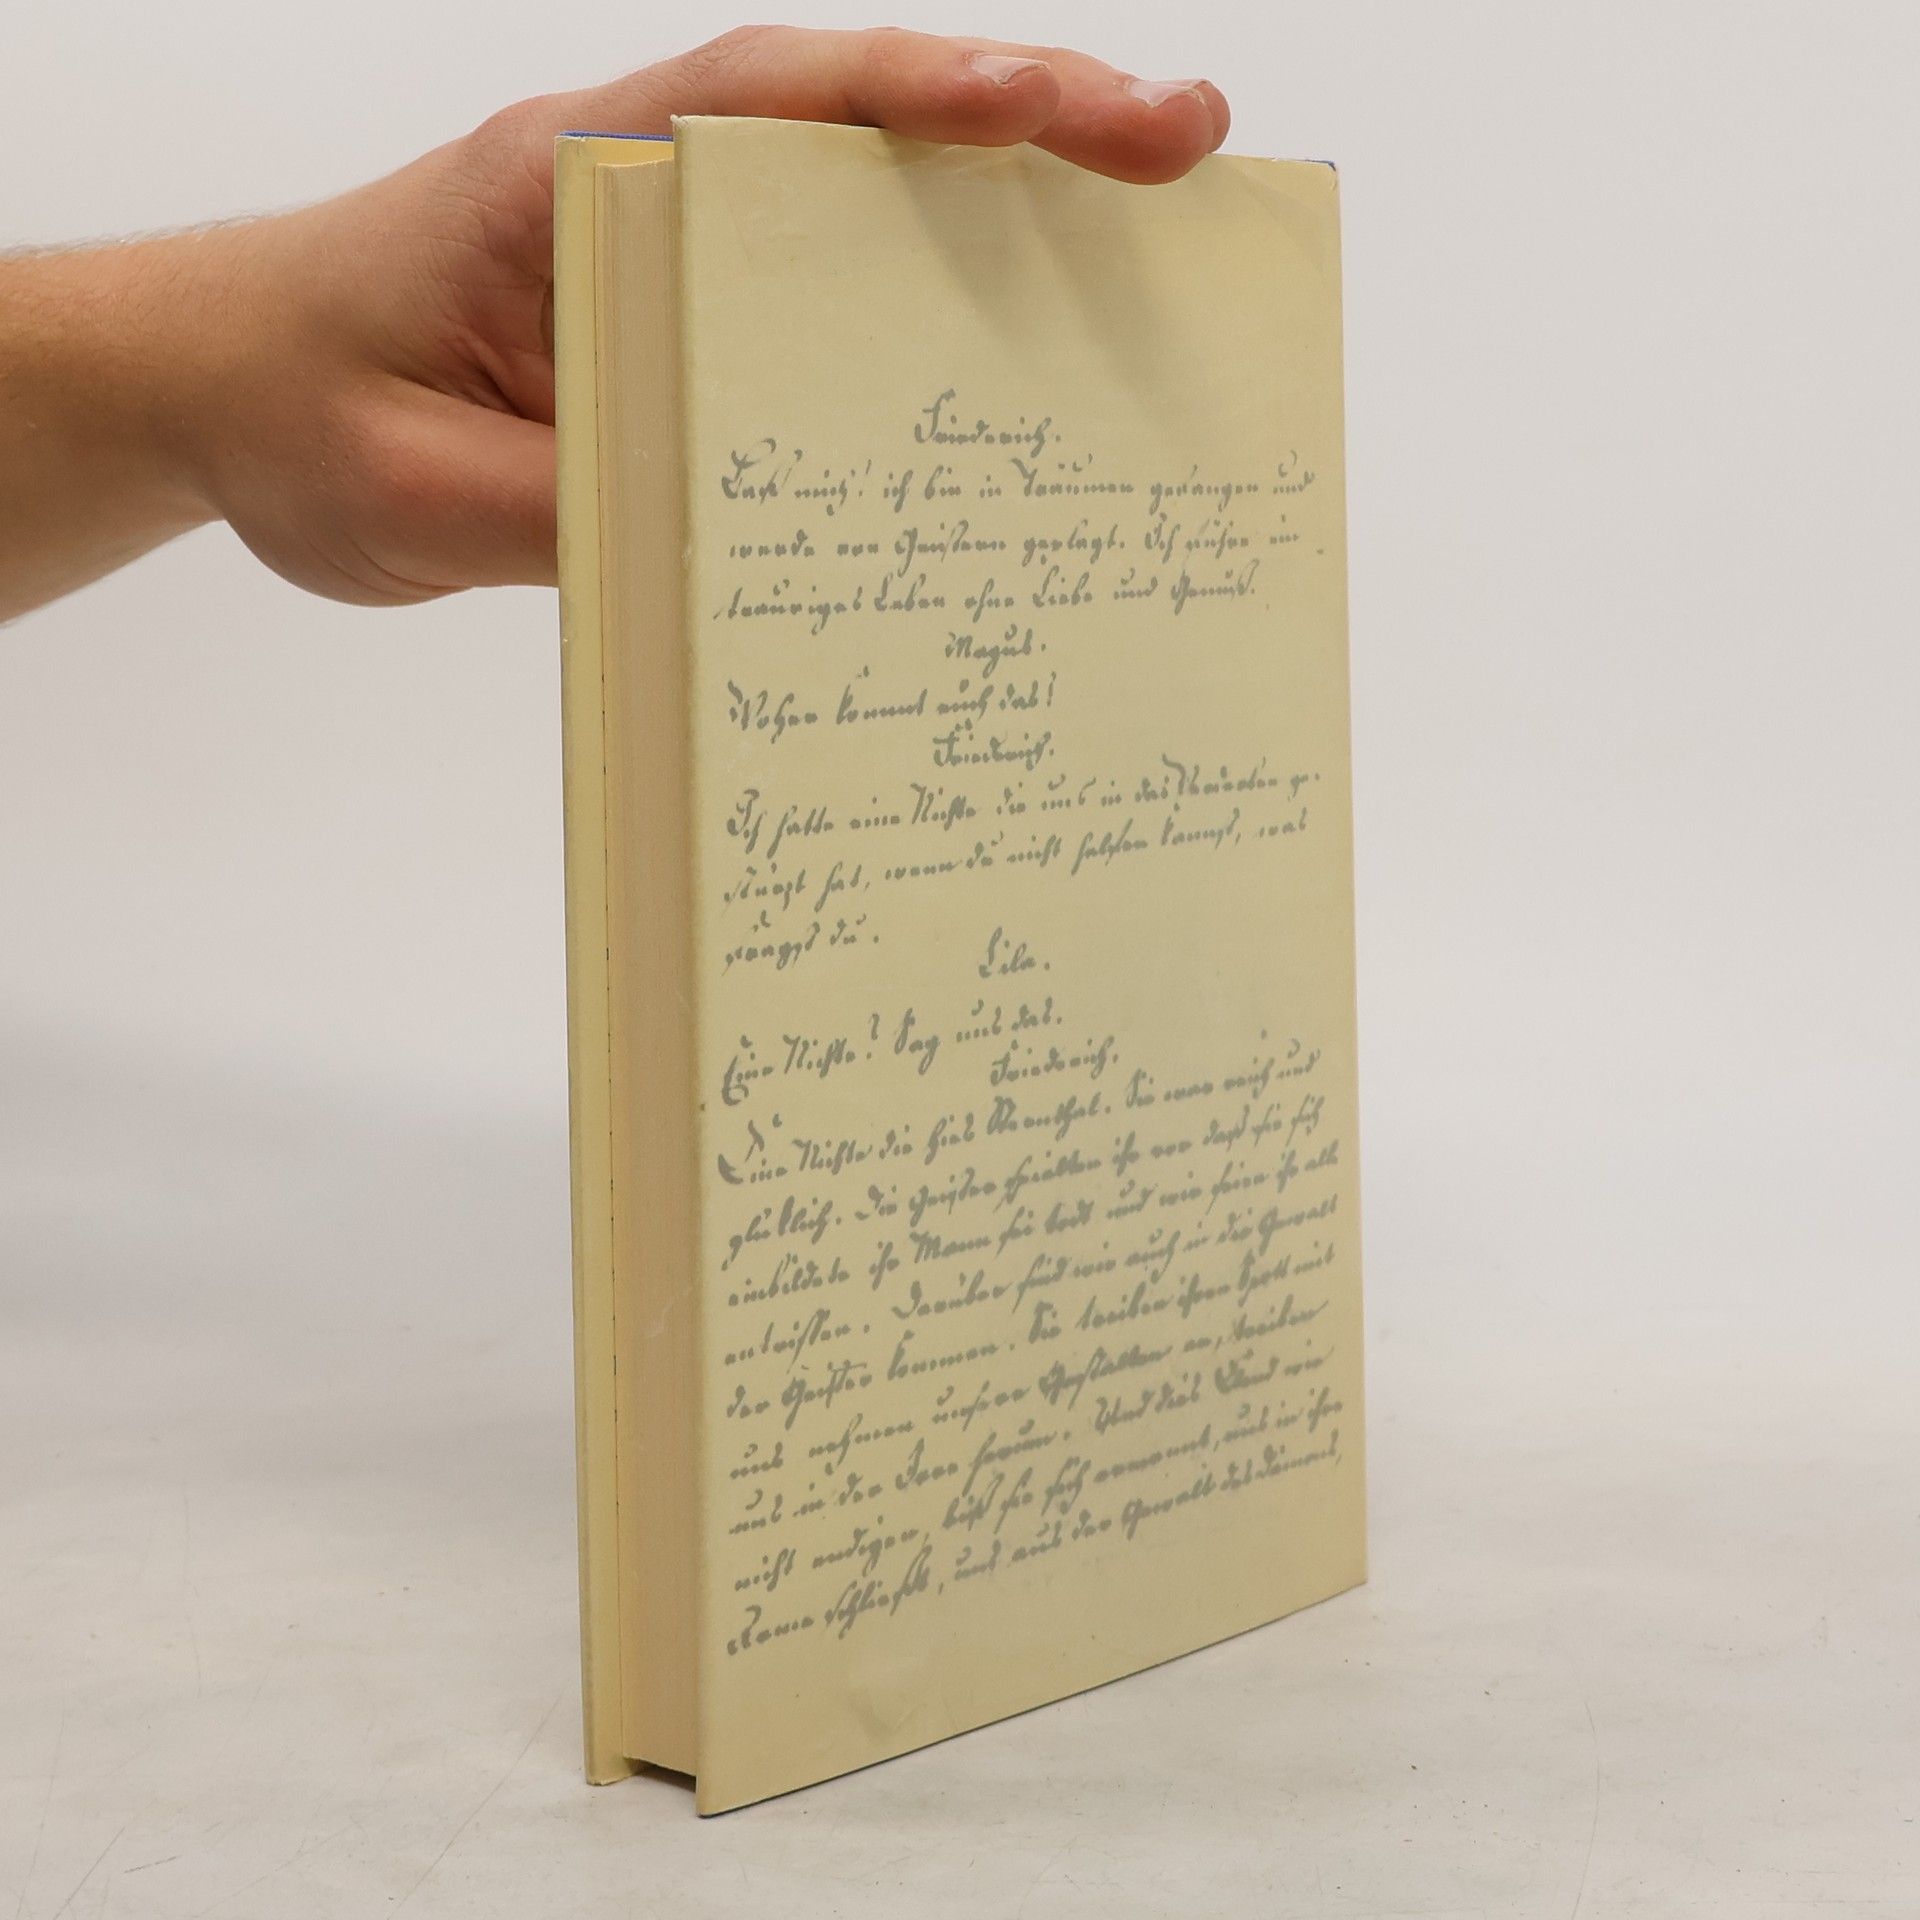 Friederich.
Lass mich! ich bin in Träumen gefangen und
werde von Geistern geplagt. Ich führe ein
trauriges Leben ohne Liebe und Genuß.
Magus.
Woher kommt euch das!
Friederich.
Ich hatte eine Nichte die uns in das Verderben ge-
stürzt hat, wenn du nicht helfen kannst, was
fragst du.
Lila.
Eine Nichte? Sag uns das.
Friederich.
Eine Nichte die hies Sternthal. Sie war reich und
glüklich. Die Geister spielten ihr vor daß sie sich
einbildete ihr Mann sei todt und wir seien ihr alle
entrissen. Darüber sind wir auch in die Gewalt
der Geister kommen. Sie treiben ihren Spott mit
uns nehmen unsere Gestalten an, treiben
uns in der Irre herum. Und dies Elend wir
nicht endigen, biß sie sich ermannt, uns in ihre
Arme schliesst, und aus der Gewalt des Dämons,